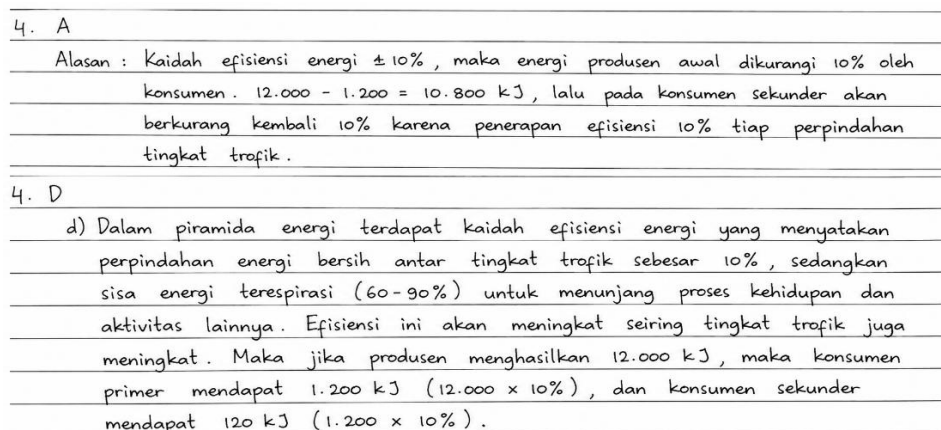 4. A
Alasan : Kaidah efisiensi energi ± 10%, maka energi produsen awal dikurangi 10% oleh
konsumen. 12.000 - 1.200 = 10.800 kJ, lalu pada konsumen sekunder akan
berkurang kembali 10% karena penerapan efisiensi 10% tiap perpindahan
tingkat trofik.
4. D
d) Dalam piramida energi terdapat kaidah efisiensi energi yang menyatakan
perpindahan energi bersih antar tingkat trofik sebesar 10%, sedangkan
sisa energi terespirasi (60-90%) untuk menunjang proses kehidupan dan
aktivitas lainnya. Efisiensi ini akan meningkat seiring tingkat trofik juga
meningkat. Maka jika produsen menghasilkan 12.000 kJ, maka konsumen
primer mendapat 1.200 kJ (12.000 x 10%), dan konsumen sekunder
mendapat 120 kJ (1.200 x 10%).